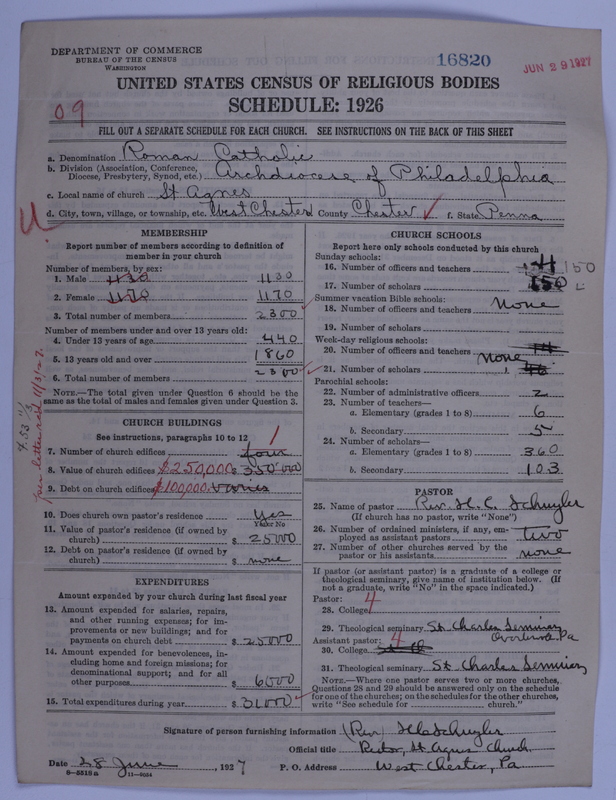 DEPARTMENT OF COMMERCE
BUREAU OF THE CENSUS
WASHINGTON
16820
JUN 29 1927
UNITED STATES CENSUS OF RELIGIOUS BODIES
SCHEDULE: 1926
09
FILL OUT A SEPARATE SCHEDULE FOR EACH CHURCH. SEE INSTRUCTIONS ON THE BACK OF THIS SHEET
a. Denomination Roman Catholic
b. Division (Association, Conference, Diocese, Presbytery, Synod, etc.) Archdiocese of Philadelphia
c. Local name of church St Agnes
d. City, town, village, or township, etc. West Chester County Chester f. State Penna
MEMBERSHIP
Report number of members according to definition of member in your church
Number of members, by sex:
1. Male 1130
2. Female 1170 1170
3. Total number of members 2300
Number of members under and over 13 years old:
4. Under 13 years of age 440
5. 13 years old and over 1860
6. Total number of members 2300
NOTE.—The total given under Question 6 should be the same as the total of males and females given under Question 3.
CHURCH BUILDINGS
See instructions, paragraphs 10 to 12
7. Number of church edifices four 1
8. Value of church edifices $250,000 350000
9. Debt on church edifices $100,000 varies
10. Does church own pastor's residence Yes
Yes or No
11. Value of pastor's residence (if owned by church) $ 25000
12. Debt on pastor's residence (if owned by church) $ none
EXPENDITURES
Amount expended by your church during last fiscal year
13. Amount expended for salaries, repairs, and other running expenses; for improvements or new buildings; and for payments on church debt $ 25000
14. Amount expended for benevolences, including home and foreign missions; for denominational support; and for all other purposes $ 6000
15. Total expenditures during year $ 31000
CHURCH SCHOOLS
Report here only schools conducted by this church
Sunday schools:
16. Number of officers and teachers
17. Number of scholars 150
Summer vacation Bible schools:
18. Number of officers and teachers None
19. Number of scholars
Week-day religious schools:
20. Number of officers and teachers None 14
21. Number of scholars
Parochial schools:
22. Number of administrative officers 2
23. Number of teachers—
a. Elementary (grades 1 to 8) 6
b. Secondary 5
24. Number of scholars—
a. Elementary (grades 1 to 8) 360
b. Secondary 103
PASTOR
25. Name of pastor Rev. H. C. Schuyler
(If church has no pastor, write "None")
26. Number of ordained ministers, if any, employed as assistant pastors two
27. Number of other churches served by the pastor or his assistants none
If pastor (or assistant pastor) is a graduate of a college or theological seminary, give name of institution below. (If not a graduate, write "No" in the space indicated.)
Pastor:
28. College 4
29. Theological seminary St. Charles Seminary
Overbrook, Pa
Assistant pastor: 4
30. College
31. Theological seminary St Charles Seminary
NOTE.—Where one pastor serves two or more churches, Questions 28 and 29 should be answered only on the schedule for one of the churches; on the schedules for the other churches, write "See schedule for church."
Signature of person furnishing information (Rev) H C Schuyler
Official title Rector, St. Agnes Church
Date 28 June, 1927 P. O. Address West Chester, Pa
8-5518a 11-8654